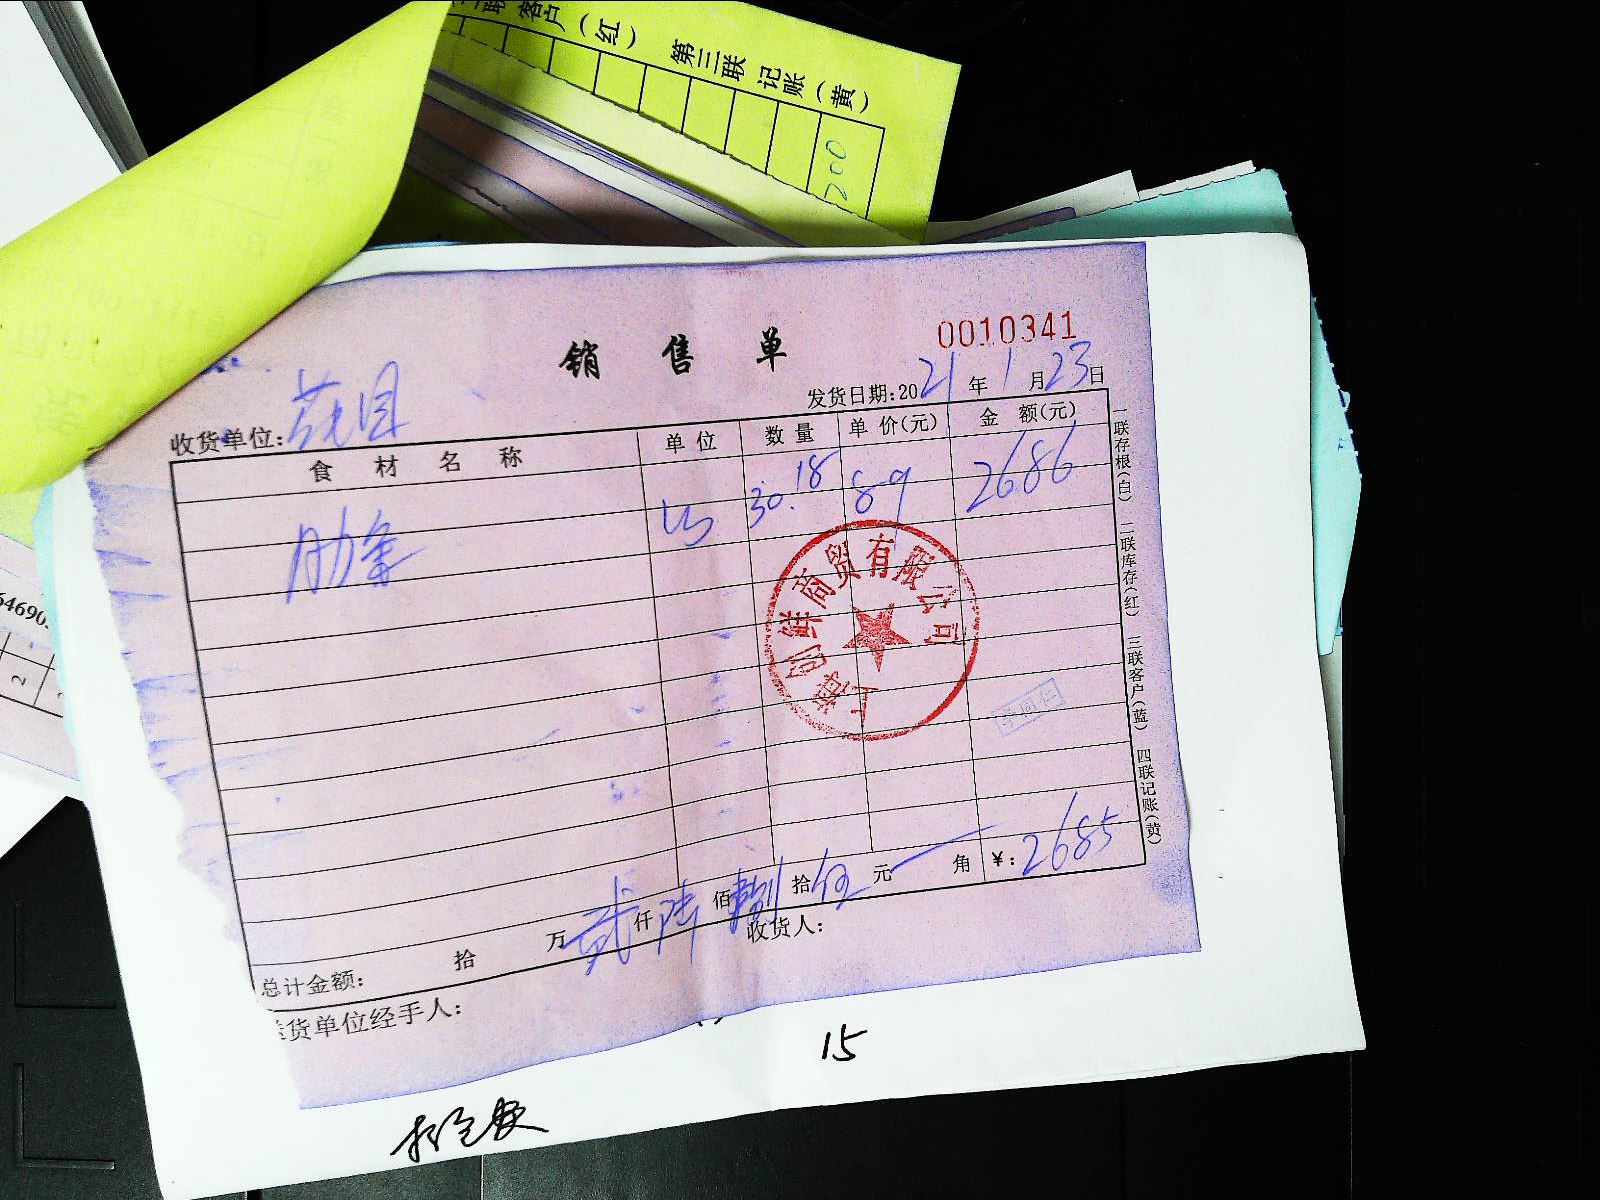 客户(红) 第三联 记账(黄)
200
销售单
0010341
发货日期:2021年1月23日
收货单位:花园
食材名称 单位 数量 单价(元) 金额(元)
肋条 30.18 89 2686
上海创鲜商贸有限公司
李同仁
一联存根(白) 二联库存(红) 三联客户(蓝) 四联记账(黄)
总计金额: 拾 万 贰 仟 陆 佰 捌 拾 伍 元 角 ¥:2685
货单位经手人: 收货人:
2
15